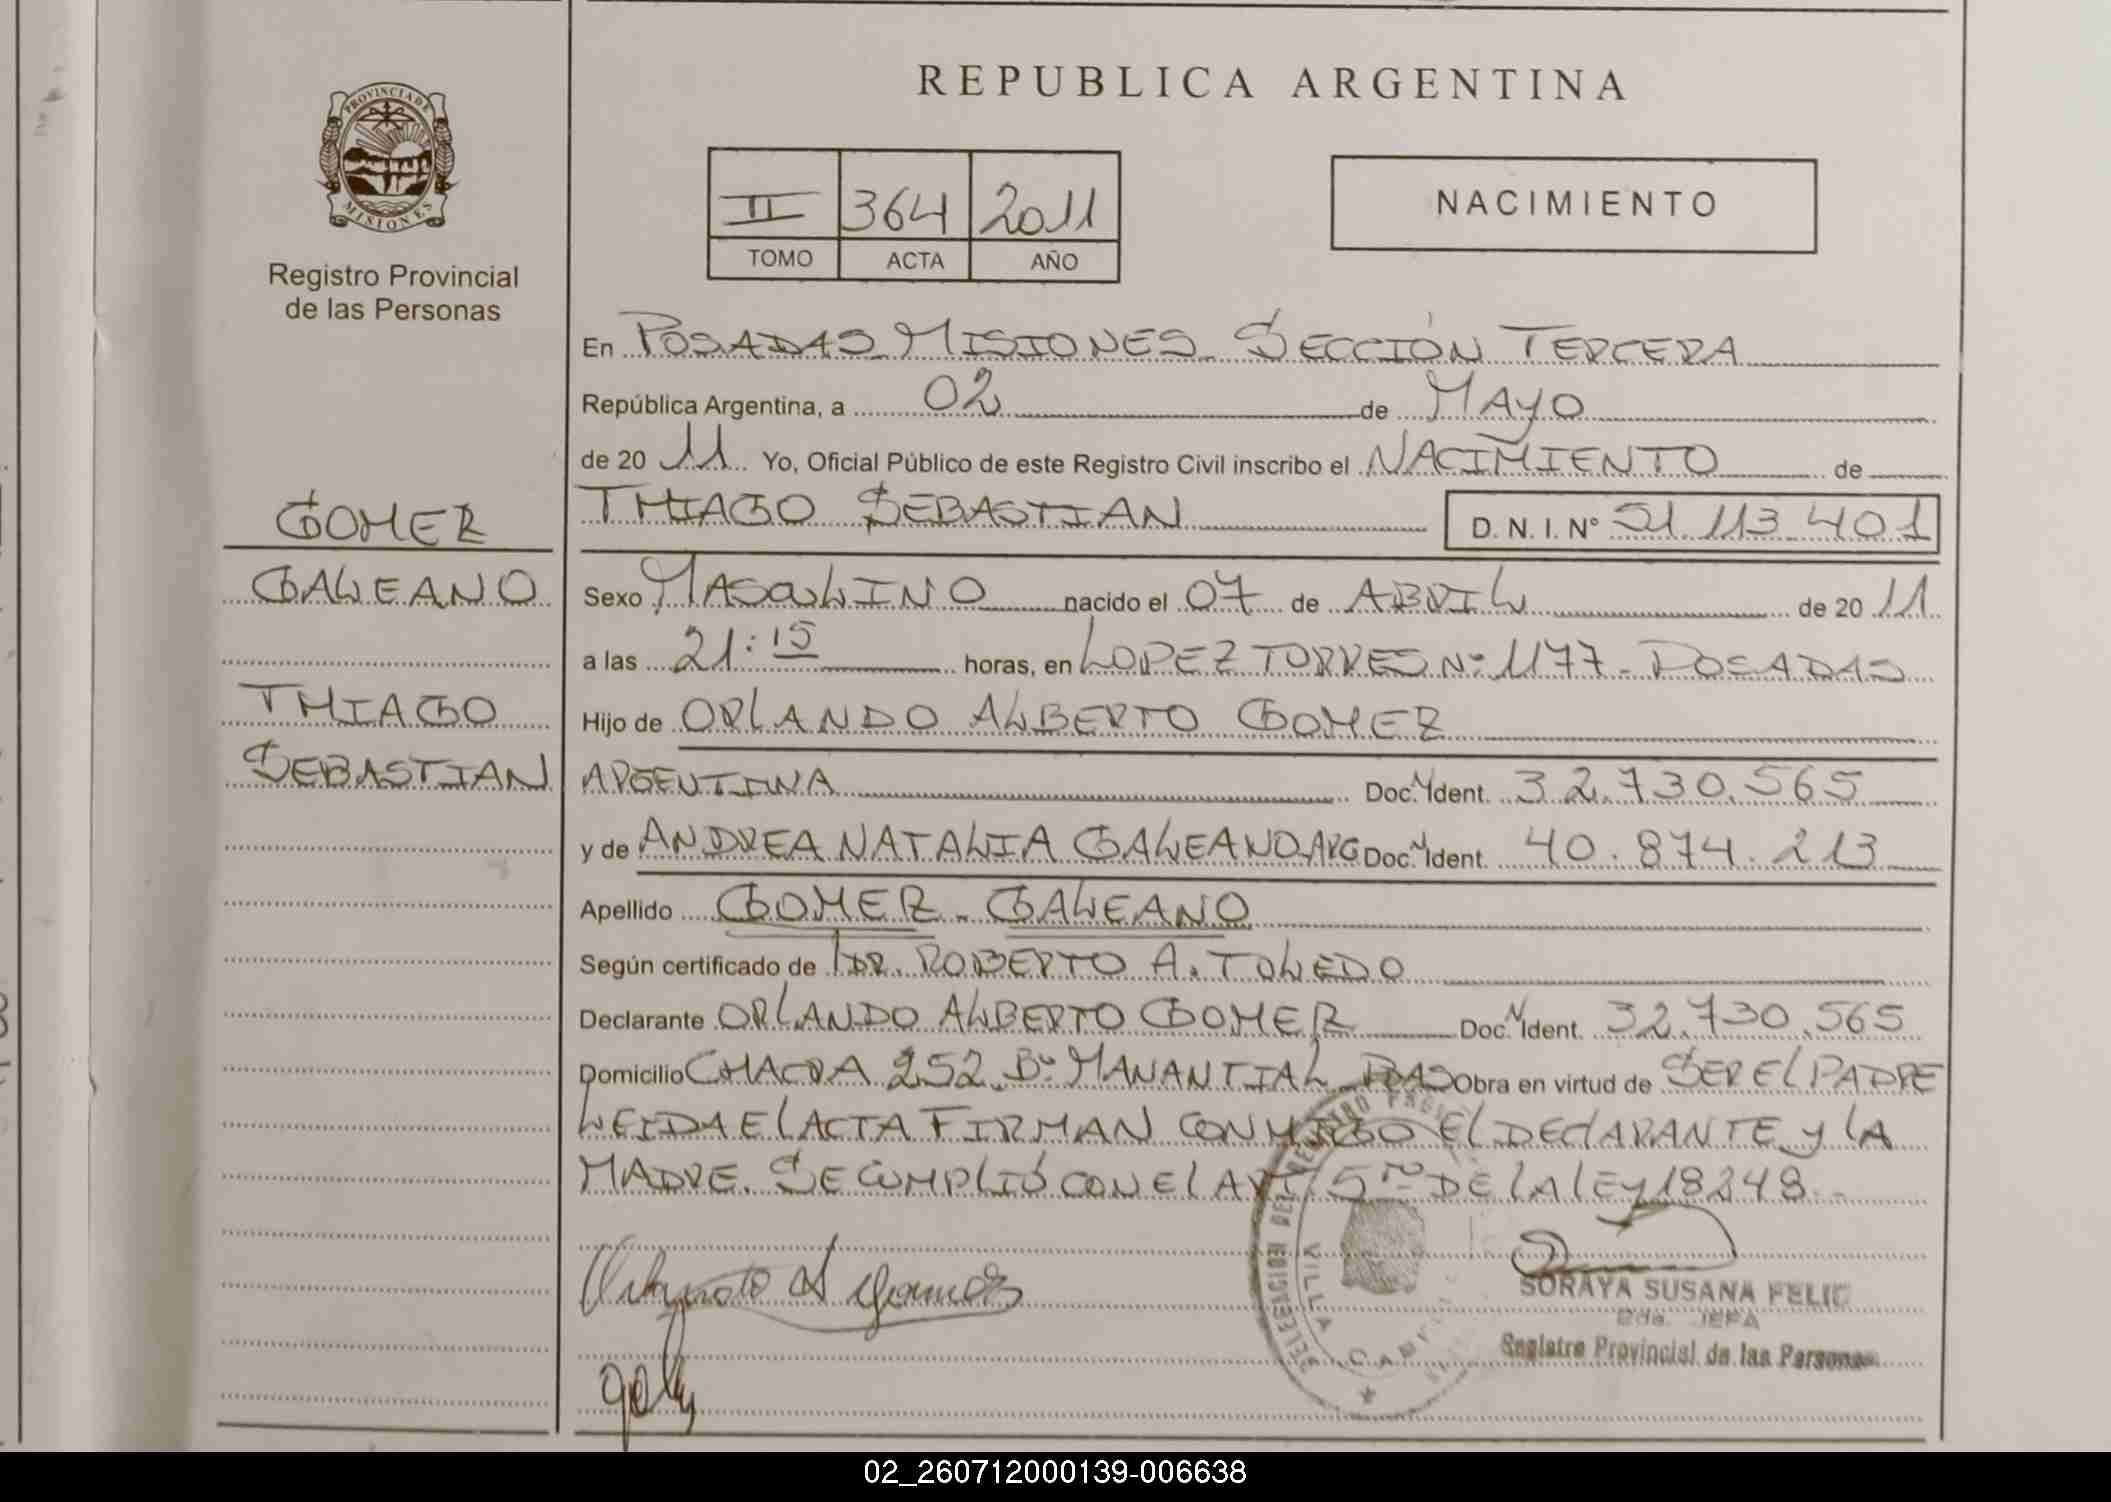 PROVINCIA DE
MISIONES
Registro Provincial
de las Personas
GOMEZ
GALEANO
THIAGO
SEBASTIAN
REPUBLICA ARGENTINA
II 364 2011
TOMO ACTA AÑO
NACIMIENTO
En POSADAS MISIONES SECCIÓN TERCERA
República Argentina, a 02 de MAYO
de 20 11 Yo, Oficial Público de este Registro Civil inscribo el NACIMIENTO de
THIAGO SEBASTIAN D. N. I. N° 51.113.401
Sexo MASCULINO nacido el 07 de ABRIL de 20 11
a las 21:15 horas, en LOPEZ TORRES Nº 1177 - POSADAS
Hijo de ORLANDO ALBERTO GOMEZ
ARGENTINA Doc. N Ident. 32.730.565
y de ANDREA NATALIA GALEANO ARG Doc. N Ident. 40.874.213
Apellido GOMEZ - GALEANO
Según certificado de DR. ROBERTO A. TOLEDO
Declarante ORLANDO ALBERTO GOMEZ Doc. N Ident. 32.730.565
Domicilio CHACRA 252 Bº MANANTIAL PDAS Obra en virtud de SER EL PADRE
LEIDA EL ACTA FIRMAN CONMIGO EL DECLARANTE Y LA
MADRE. SE CUMPLIÓ CON EL ART 5to DE LA LEY 18248.-
DELEGACION DEL REGISTRO
VILLA
SORAYA SUSANA FELIC
Pda. JEFA
Registro Provincial de las Personas
02_260712000139-006638